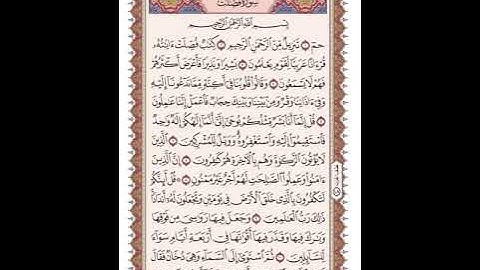 سورة فصلت
بسم الله الرحمن الرحيم
حم ۝ تَنزِيلٌ مِّنَ الرَّحْمَٰنِ الرَّحِيمِ ۝ كِتَابٌ فُصِّلَتْ آيَاتُهُ
قُرْآنًا عَرَبِيًّا لِّقَوْمٍ يَعْلَمُونَ ۝ بَشِيرًا وَنَذِيرًا فَأَعْرَضَ أَكْثَرُهُمْ
فَهُمْ لَا يَسْمَعُونَ ۝ وَقَالُوا قُلُوبُنَا فِي أَكِنَّةٍ مِّمَّا تَدْعُونَا إِلَيْهِ
وَفِي آذَانِنَا وَقْرٌ وَمِن بَيْنِنَا وَبَيْنِكَ حِجَابٌ فَاعْمَلْ إِنَّنَا عَامِلُونَ
۝ قُلْ إِنَّمَا أَنَا بَشَرٌ مِّثْلُكُمْ يُوحَىٰ إِلَيَّ أَنَّمَا إِلَٰهُكُمْ إِلَٰهٌ وَاحِدٌ
فَاسْتَقِيمُوا إِلَيْهِ وَاسْتَغْفِرُوهُ وَوَيْلٌ لِّلْمُشْرِكِينَ ۝ الَّذِينَ
لَا يُؤْتُونَ الزَّكَاةَ وَهُم بِالْآخِرَةِ هُمْ كَافِرُونَ ۝ إِنَّ الَّذِينَ
آمَنُوا وَعَمِلُوا الصَّالِحَاتِ لَهُمْ أَجْرٌ غَيْرُ مَمْنُونٍ ۝ قُلْ أَئِنَّكُمْ
لَتَكْفُرُونَ بِالَّذِي خَلَقَ الْأَرْضَ فِي يَوْمَيْنِ وَتَجْعَلُونَ لَهُ أَندَادًا
ذَٰلِكَ رَبُّ الْعَالَمِينَ ۝ وَجَعَلَ فِيهَا رَوَاسِيَ مِن فَوْقِهَا
وَبَارَكَ فِيهَا وَقَدَّرَ فِيهَا أَقْوَاتَهَا فِي أَرْبَعَةِ أَيَّامٍ سَوَاءً
لِّلسَّائِلِينَ ۝ ثُمَّ اسْتَوَىٰ إِلَى السَّمَاءِ وَهِيَ دُخَانٌ فَقَالَ